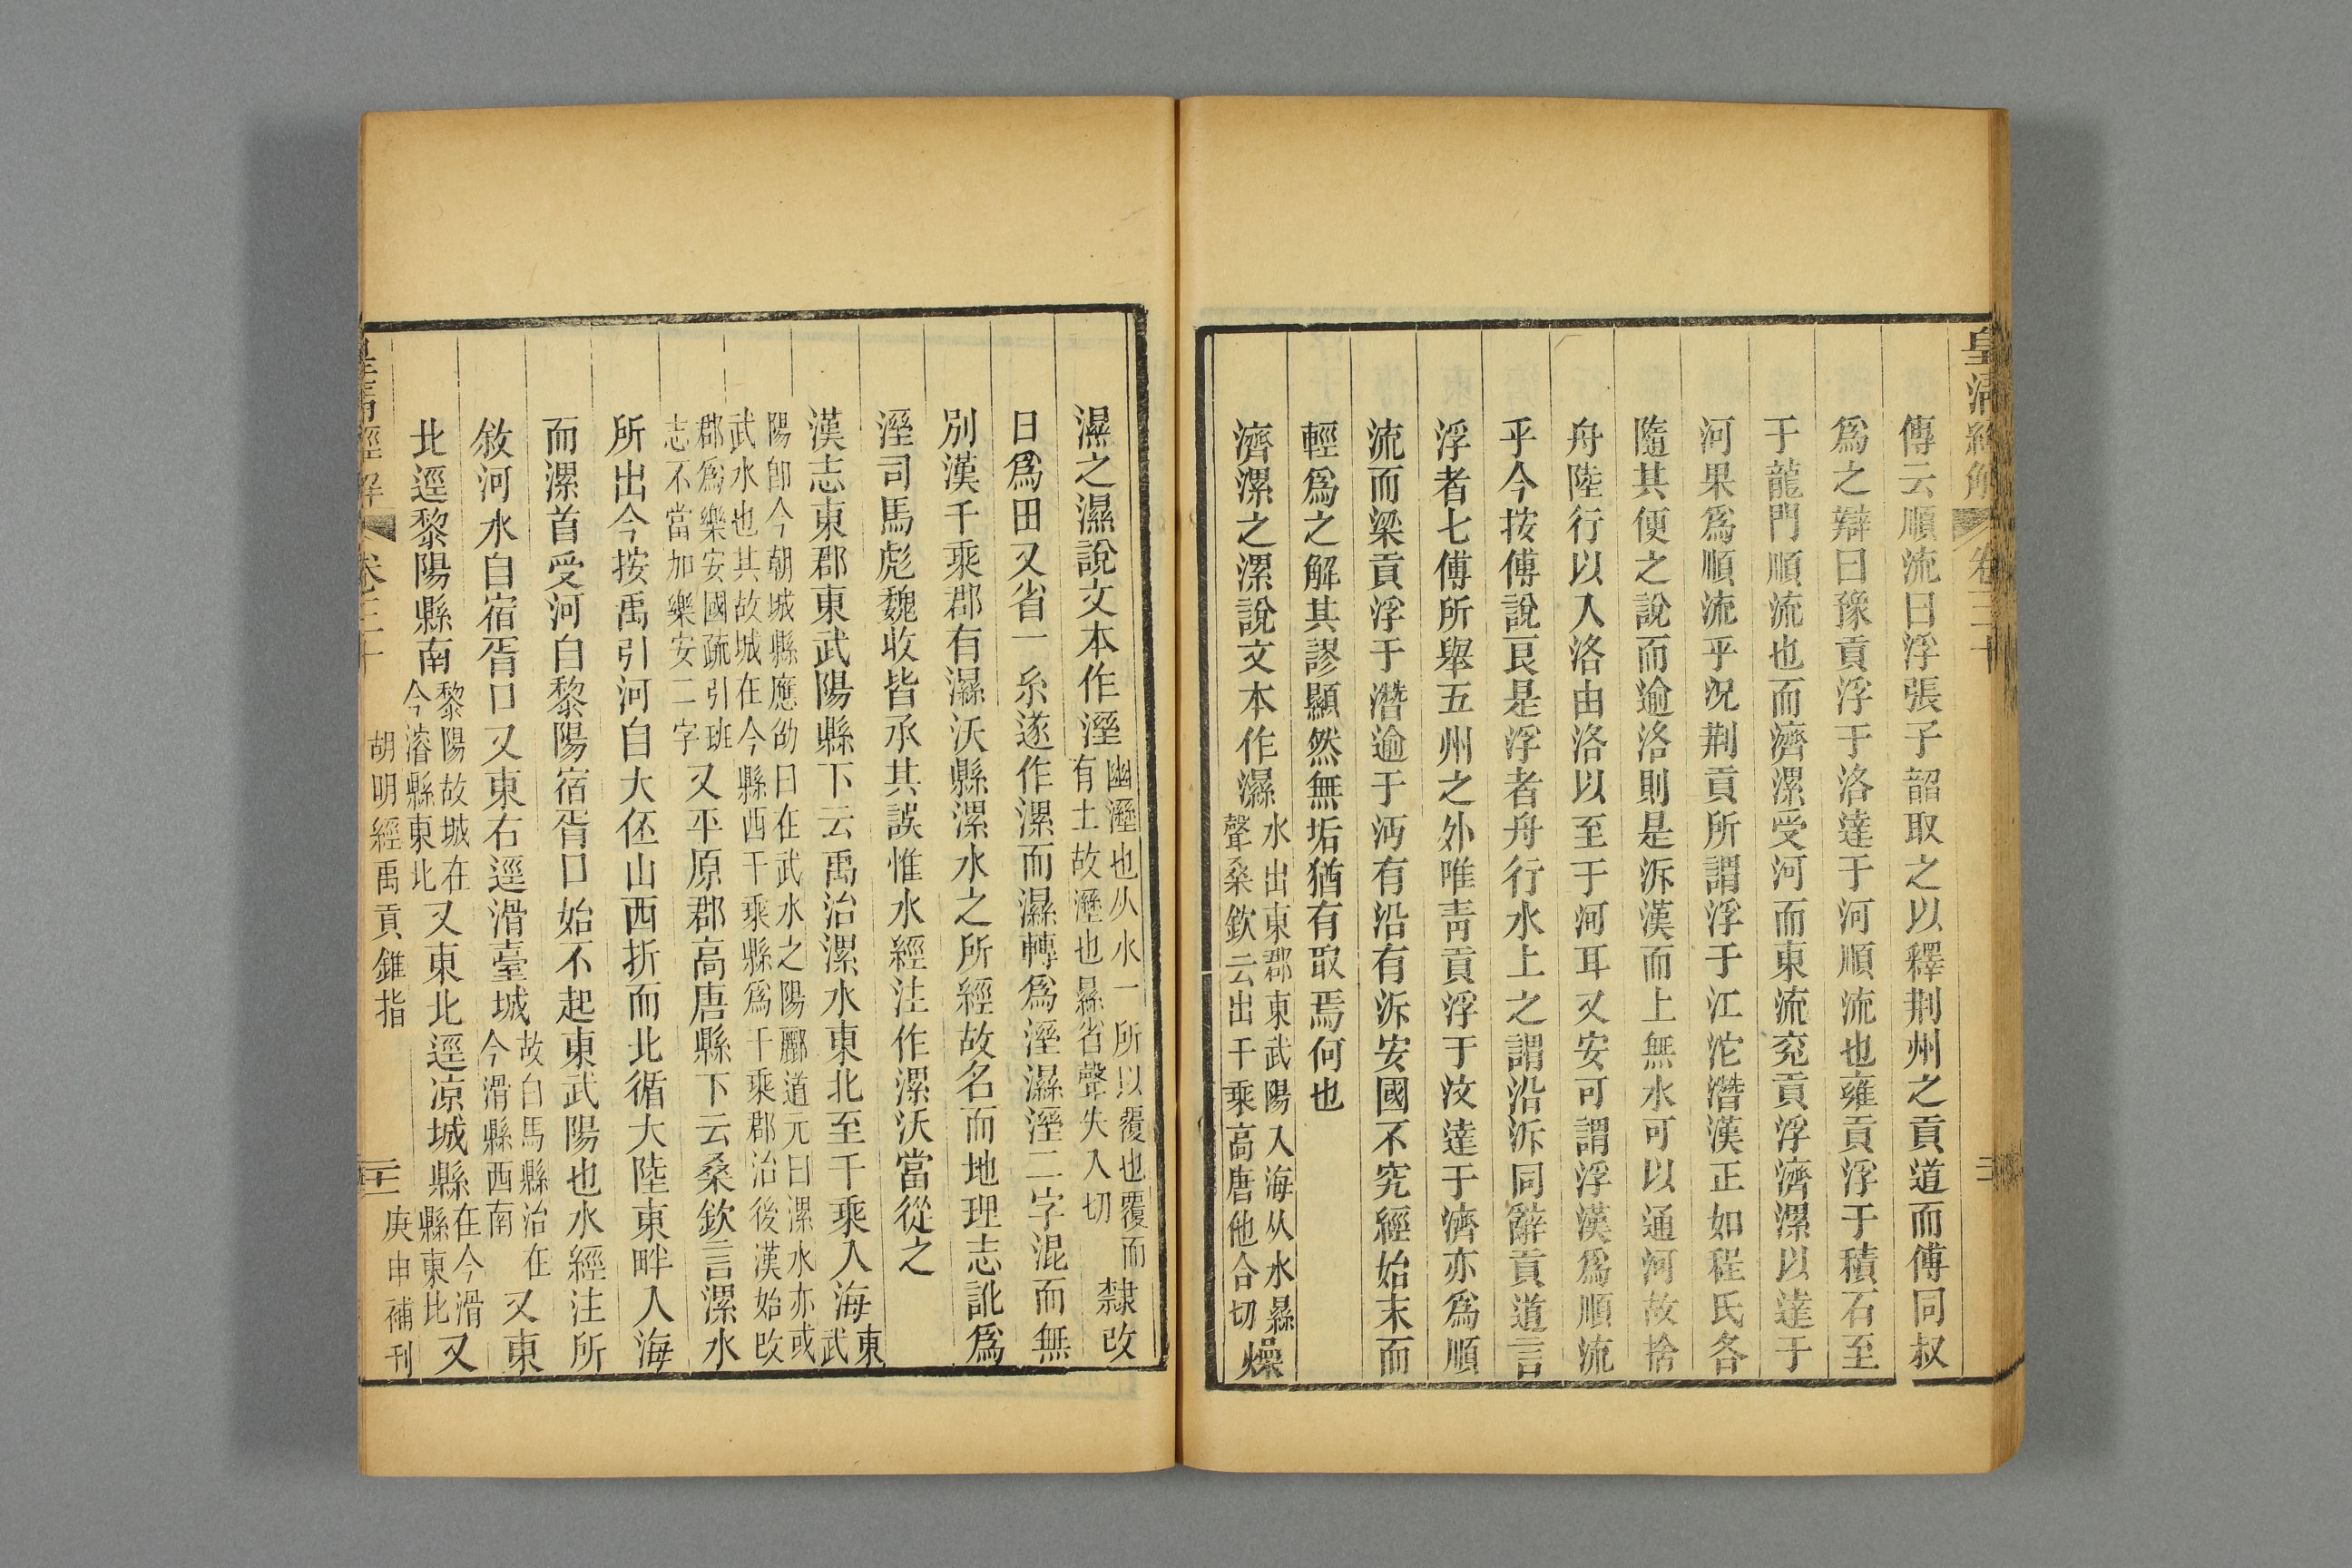 皇清經解 卷三十
傳云順流曰浮張子韶取之以釋荆州之貢道而傅同叔
爲之辯曰豫貢浮于洛達于河順流也雍貢浮于積石至
于龍門順流也而濟漯受河而東流兗貢浮濟漯以達于
河果爲順流乎况荆貢所謂浮于江沱潛漢正如程氏各
隨其便之說而逾洛則是泝漢而上無水可以通河故捨
舟陸行以入洛由洛以至于河耳又安可謂浮漢爲順流
乎今按傅說良是浮者舟行水上之謂沿泝同辭貢道言
浮者七傅所舉五州之外唯靑貢浮于汶達于濟亦爲順
流而梁貢浮于潛逾于沔有沿有泝安國不究經始末而
輕爲之解其謬顯然無垢猶有取焉何也
濟漯之漯說文本作濕水出東郡東武陽入海从水㬎聲桑欽云出千乘高唐他合切燥
濕之濕說文本作溼幽溼也从水一所以覆也覆而有土故溼也㬎省聲失入切隸改
日爲田又省一糸遂作漯而濕轉爲溼濕溼二字混而無
別漢千乘郡有濕沃縣漯水之所經故名而地理志訛爲
溼司馬彪魏收皆承其誤惟水經注作漯沃當從之
漢志東郡東武陽縣下云禹治漯水東北至千乘入海東武
陽卽今朝城縣應劭曰在武水之陽酈道元曰漯水亦或武水也其故城在今縣西千乘縣爲千乘郡治後漢始改
郡爲樂安國疏引班志不當加樂安二字又平原郡高唐縣下云桑欽言漯水
所出今按禹引河自大伾山西折而北循大陸東畔入海
而漯首受河自黎陽宿胥口始不起東武陽也水經注所
敘河水自宿胥口又東右逕滑臺城故白馬縣治在今滑縣西南又東
北逕黎陽縣南黎陽故城在今濬縣東北又東北逕凉城縣在今滑縣東北又
皇淸經解 卷三十 胡明經禹貢錐指 庚申補刊